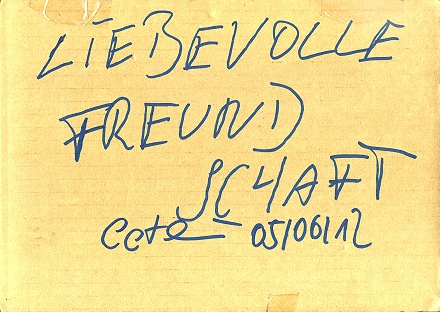 LIEBEVOLLE
FREUND
SCHAFT
05/06/12